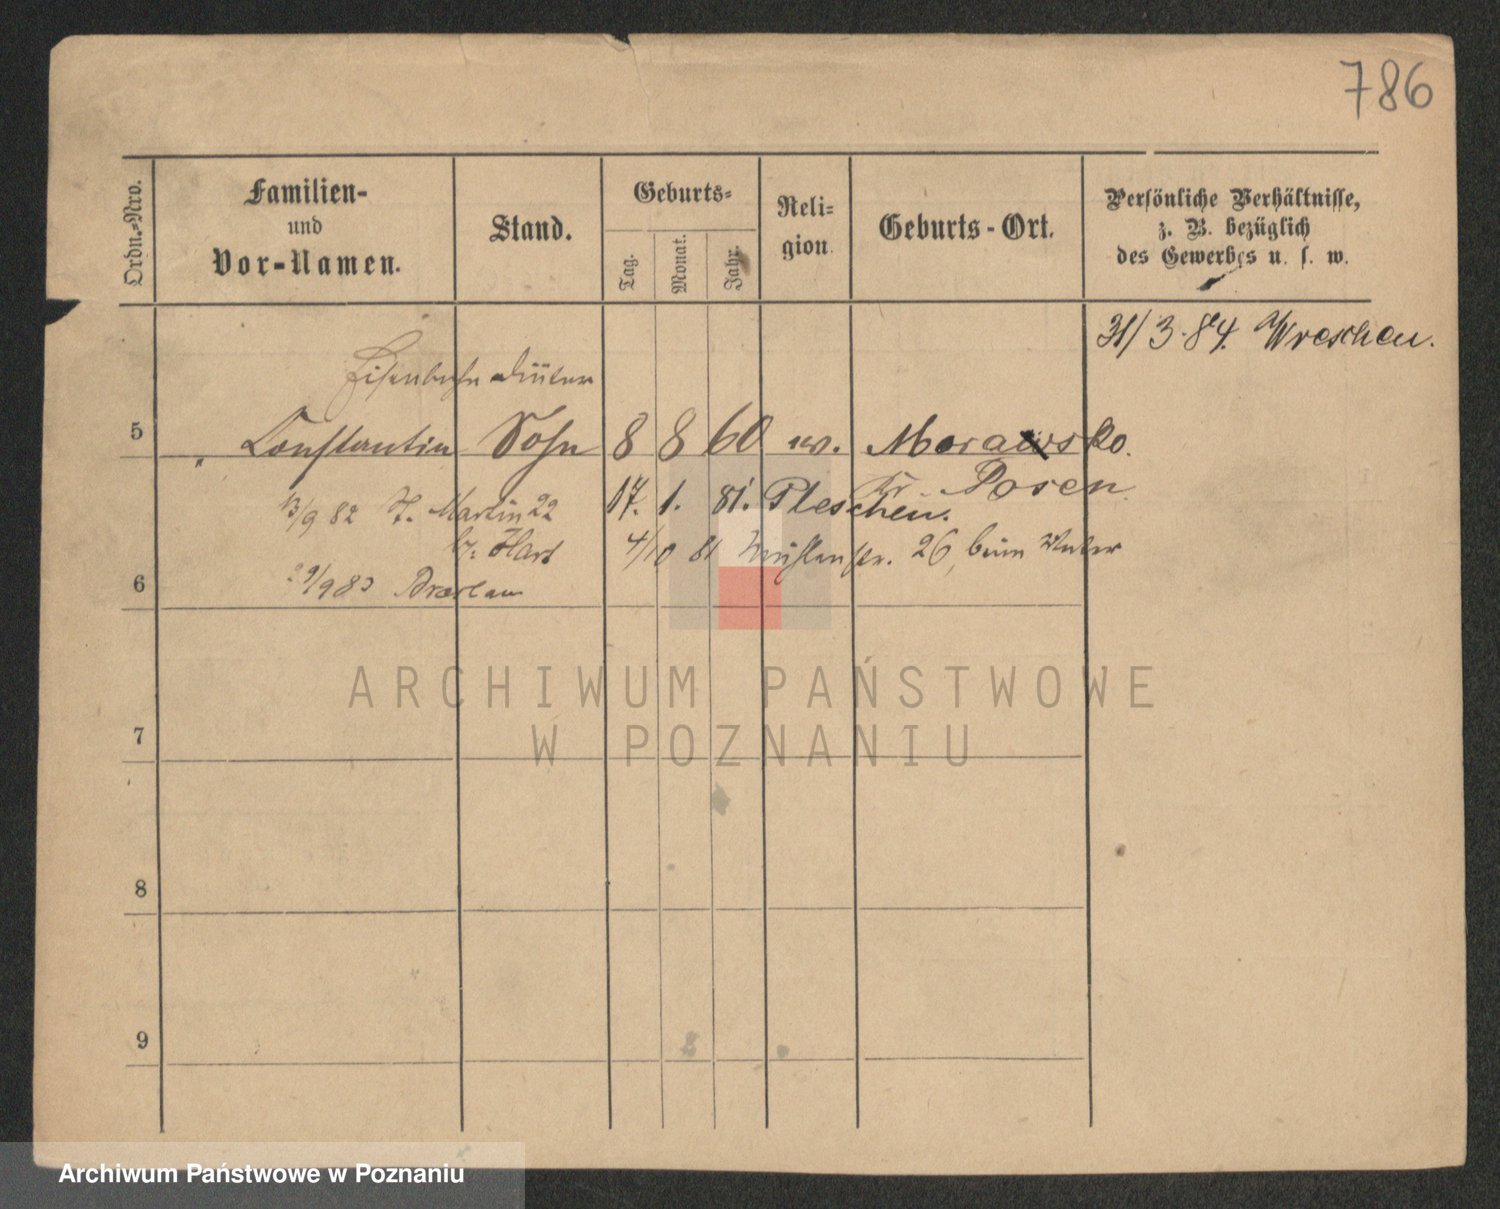 786
Ordn.=Nro.
Familien-
und
Vor-Namen.
Stand.
Geburts=
Tag.
Monat.
Jahr.
Reli=
gion.
Geburts-Ort.
Persönliche Verhältnisse,
z. B. bezüglich
des Gewerbes u. s. w.
31/3.84. Wreschen.
Eisenbahn
5 Constantin Sohn 8 8 60 Morawsko.
Kr. Posen.
13/9 82 St. Martin 22 17. 1. 81. Pleschen.
b. Hart 4/10 81 Mühlenstr. 26, beim
6 29/9 83 Breslau
7
8
9
ARCHIWUM PAŃSTWOWE
W POZNANIU
Archiwum Państwowe w Poznaniu